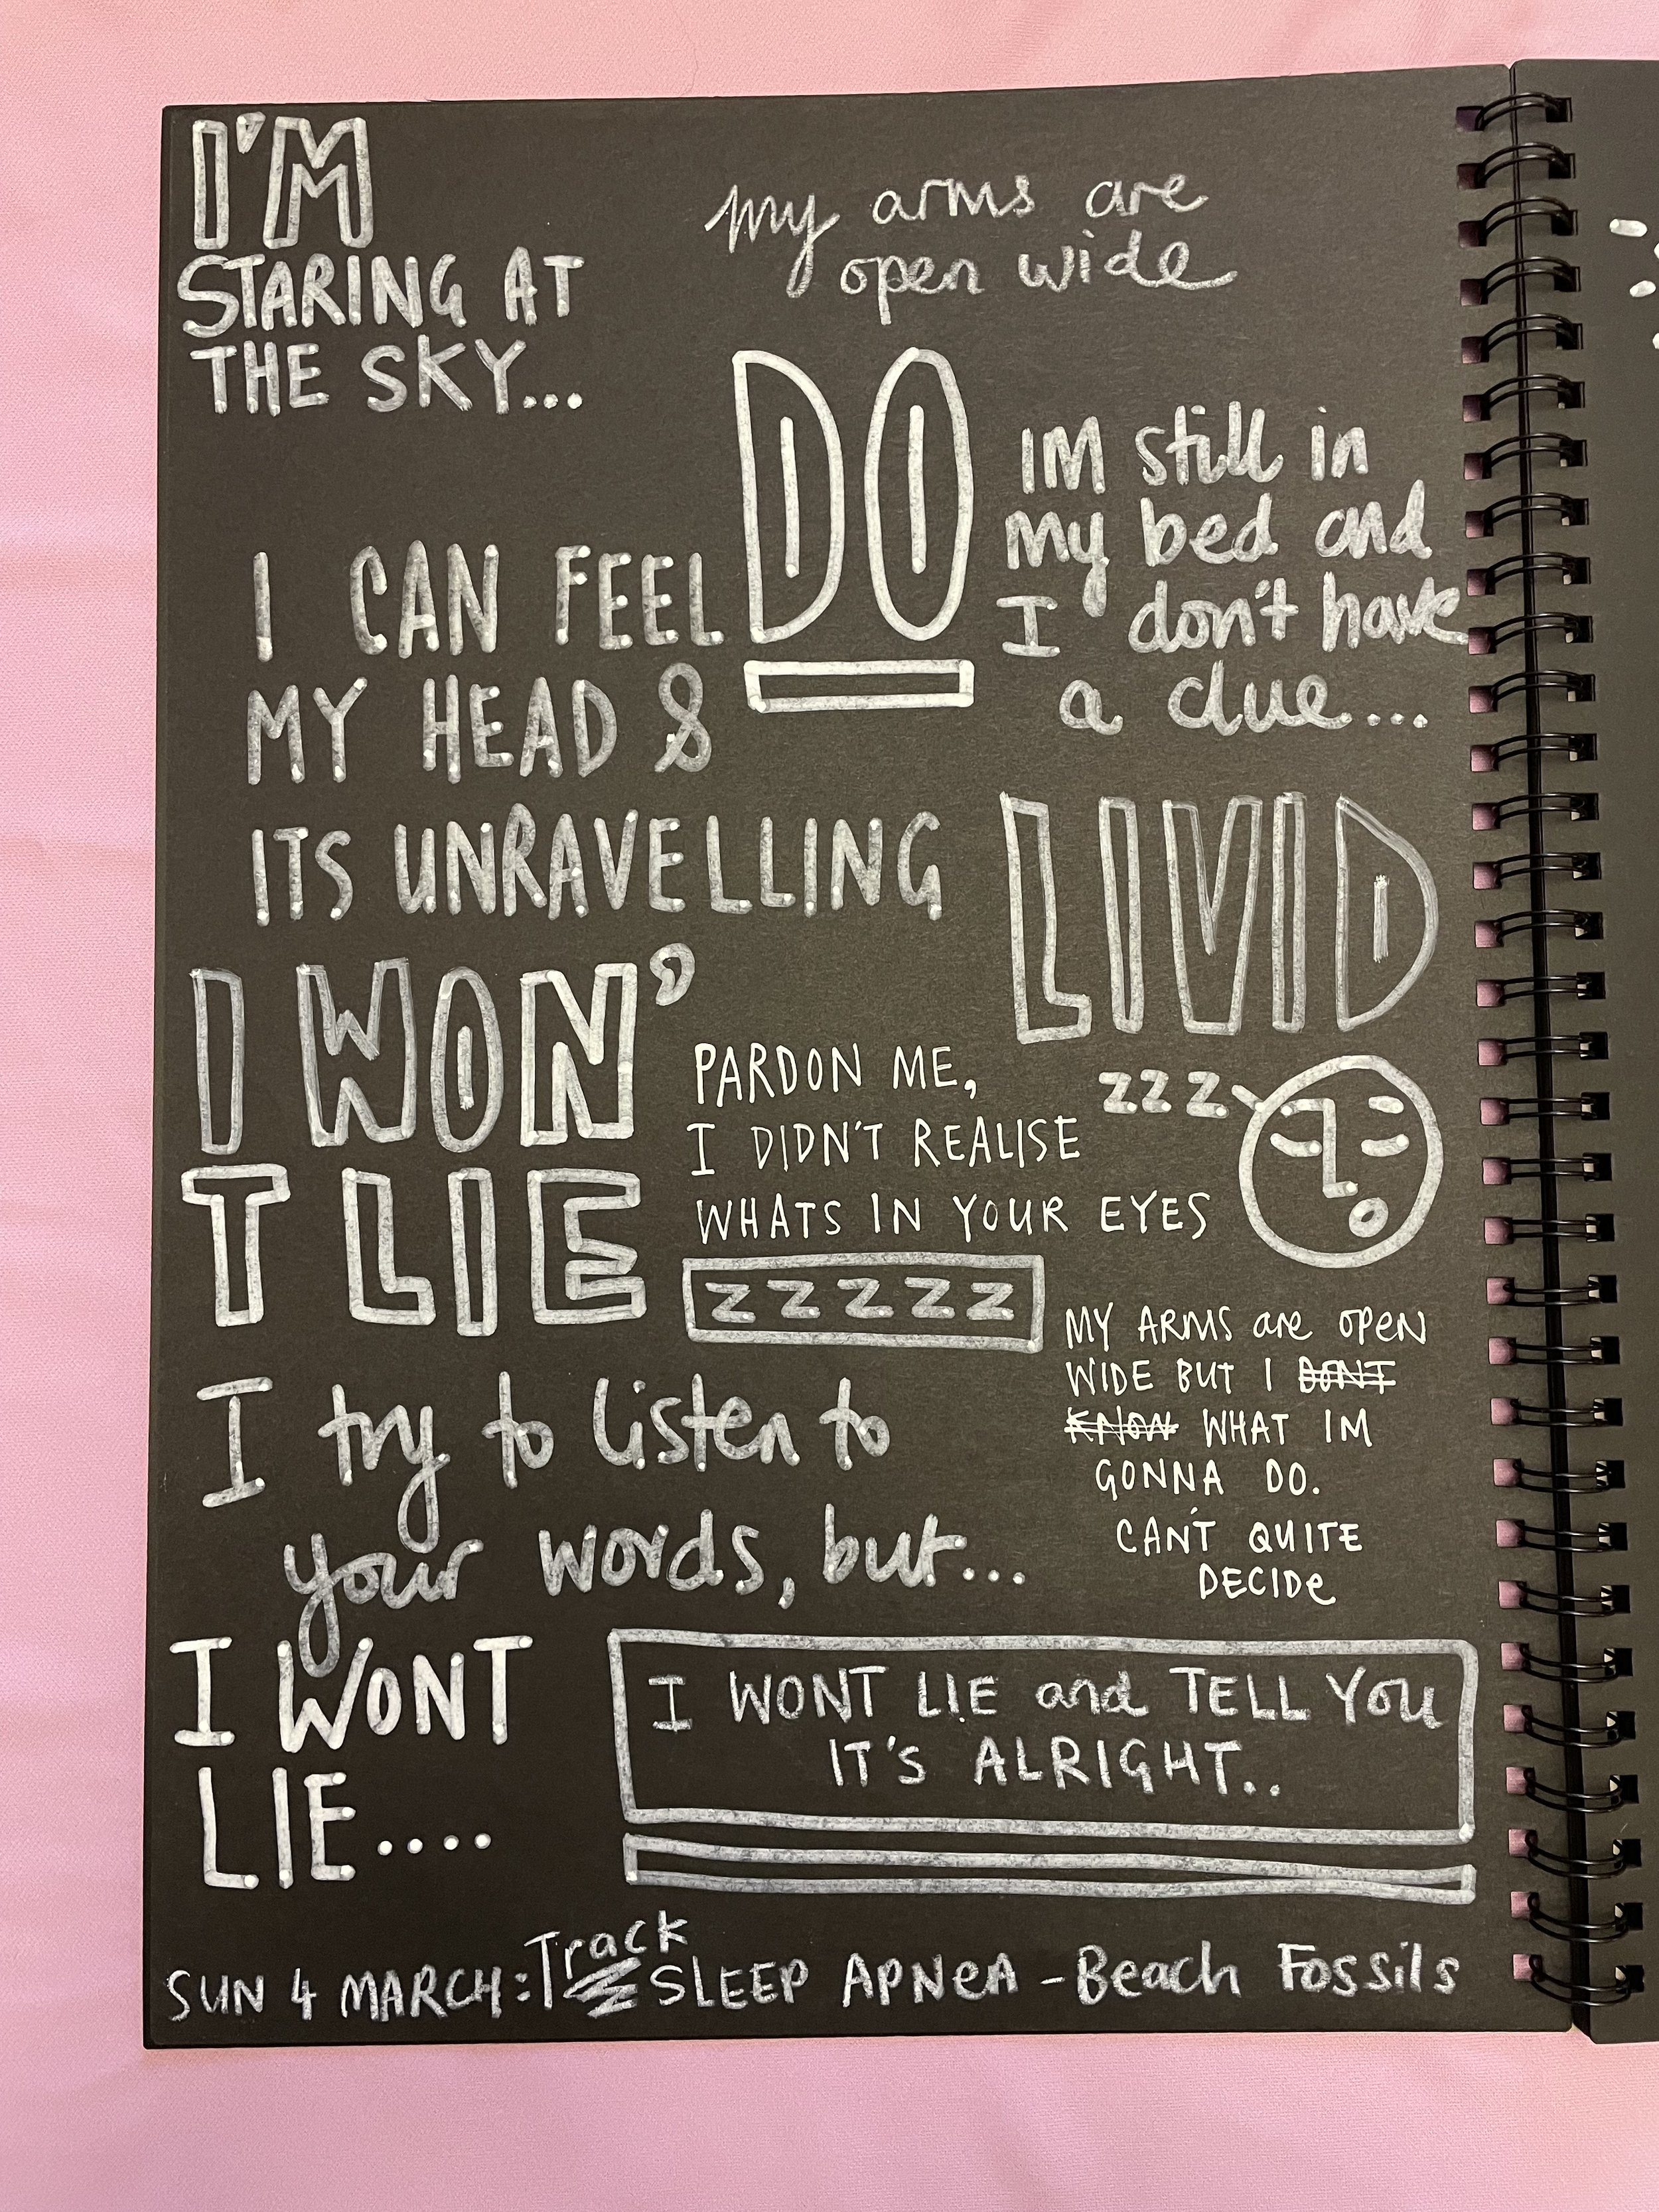 I'M
STARING AT
THE SKY...
my arms are
open wide
DO
IM still in
my bed and
I don't have
a clue...
I CAN FEEL
MY HEAD &
ITS UNRAVELLING
LIVID
I WON'
T LIE
PARDON ME,
I DIDN'T REALISE
WHATS IN YOUR EYES
zzz
ZZZZZ
MY ARMS are OPEN
WIDE BUT I DONT
KNOW WHAT IM
GONNA DO.
CAN'T QUITE
DECIDe
I try to listen to
your words, but...
I WONT
LIE....
I WONT LIE and TELL YOU
IT'S ALRIGHT..
SUN 4 MARCH: Track SLEEP APNeA - Beach Fossils